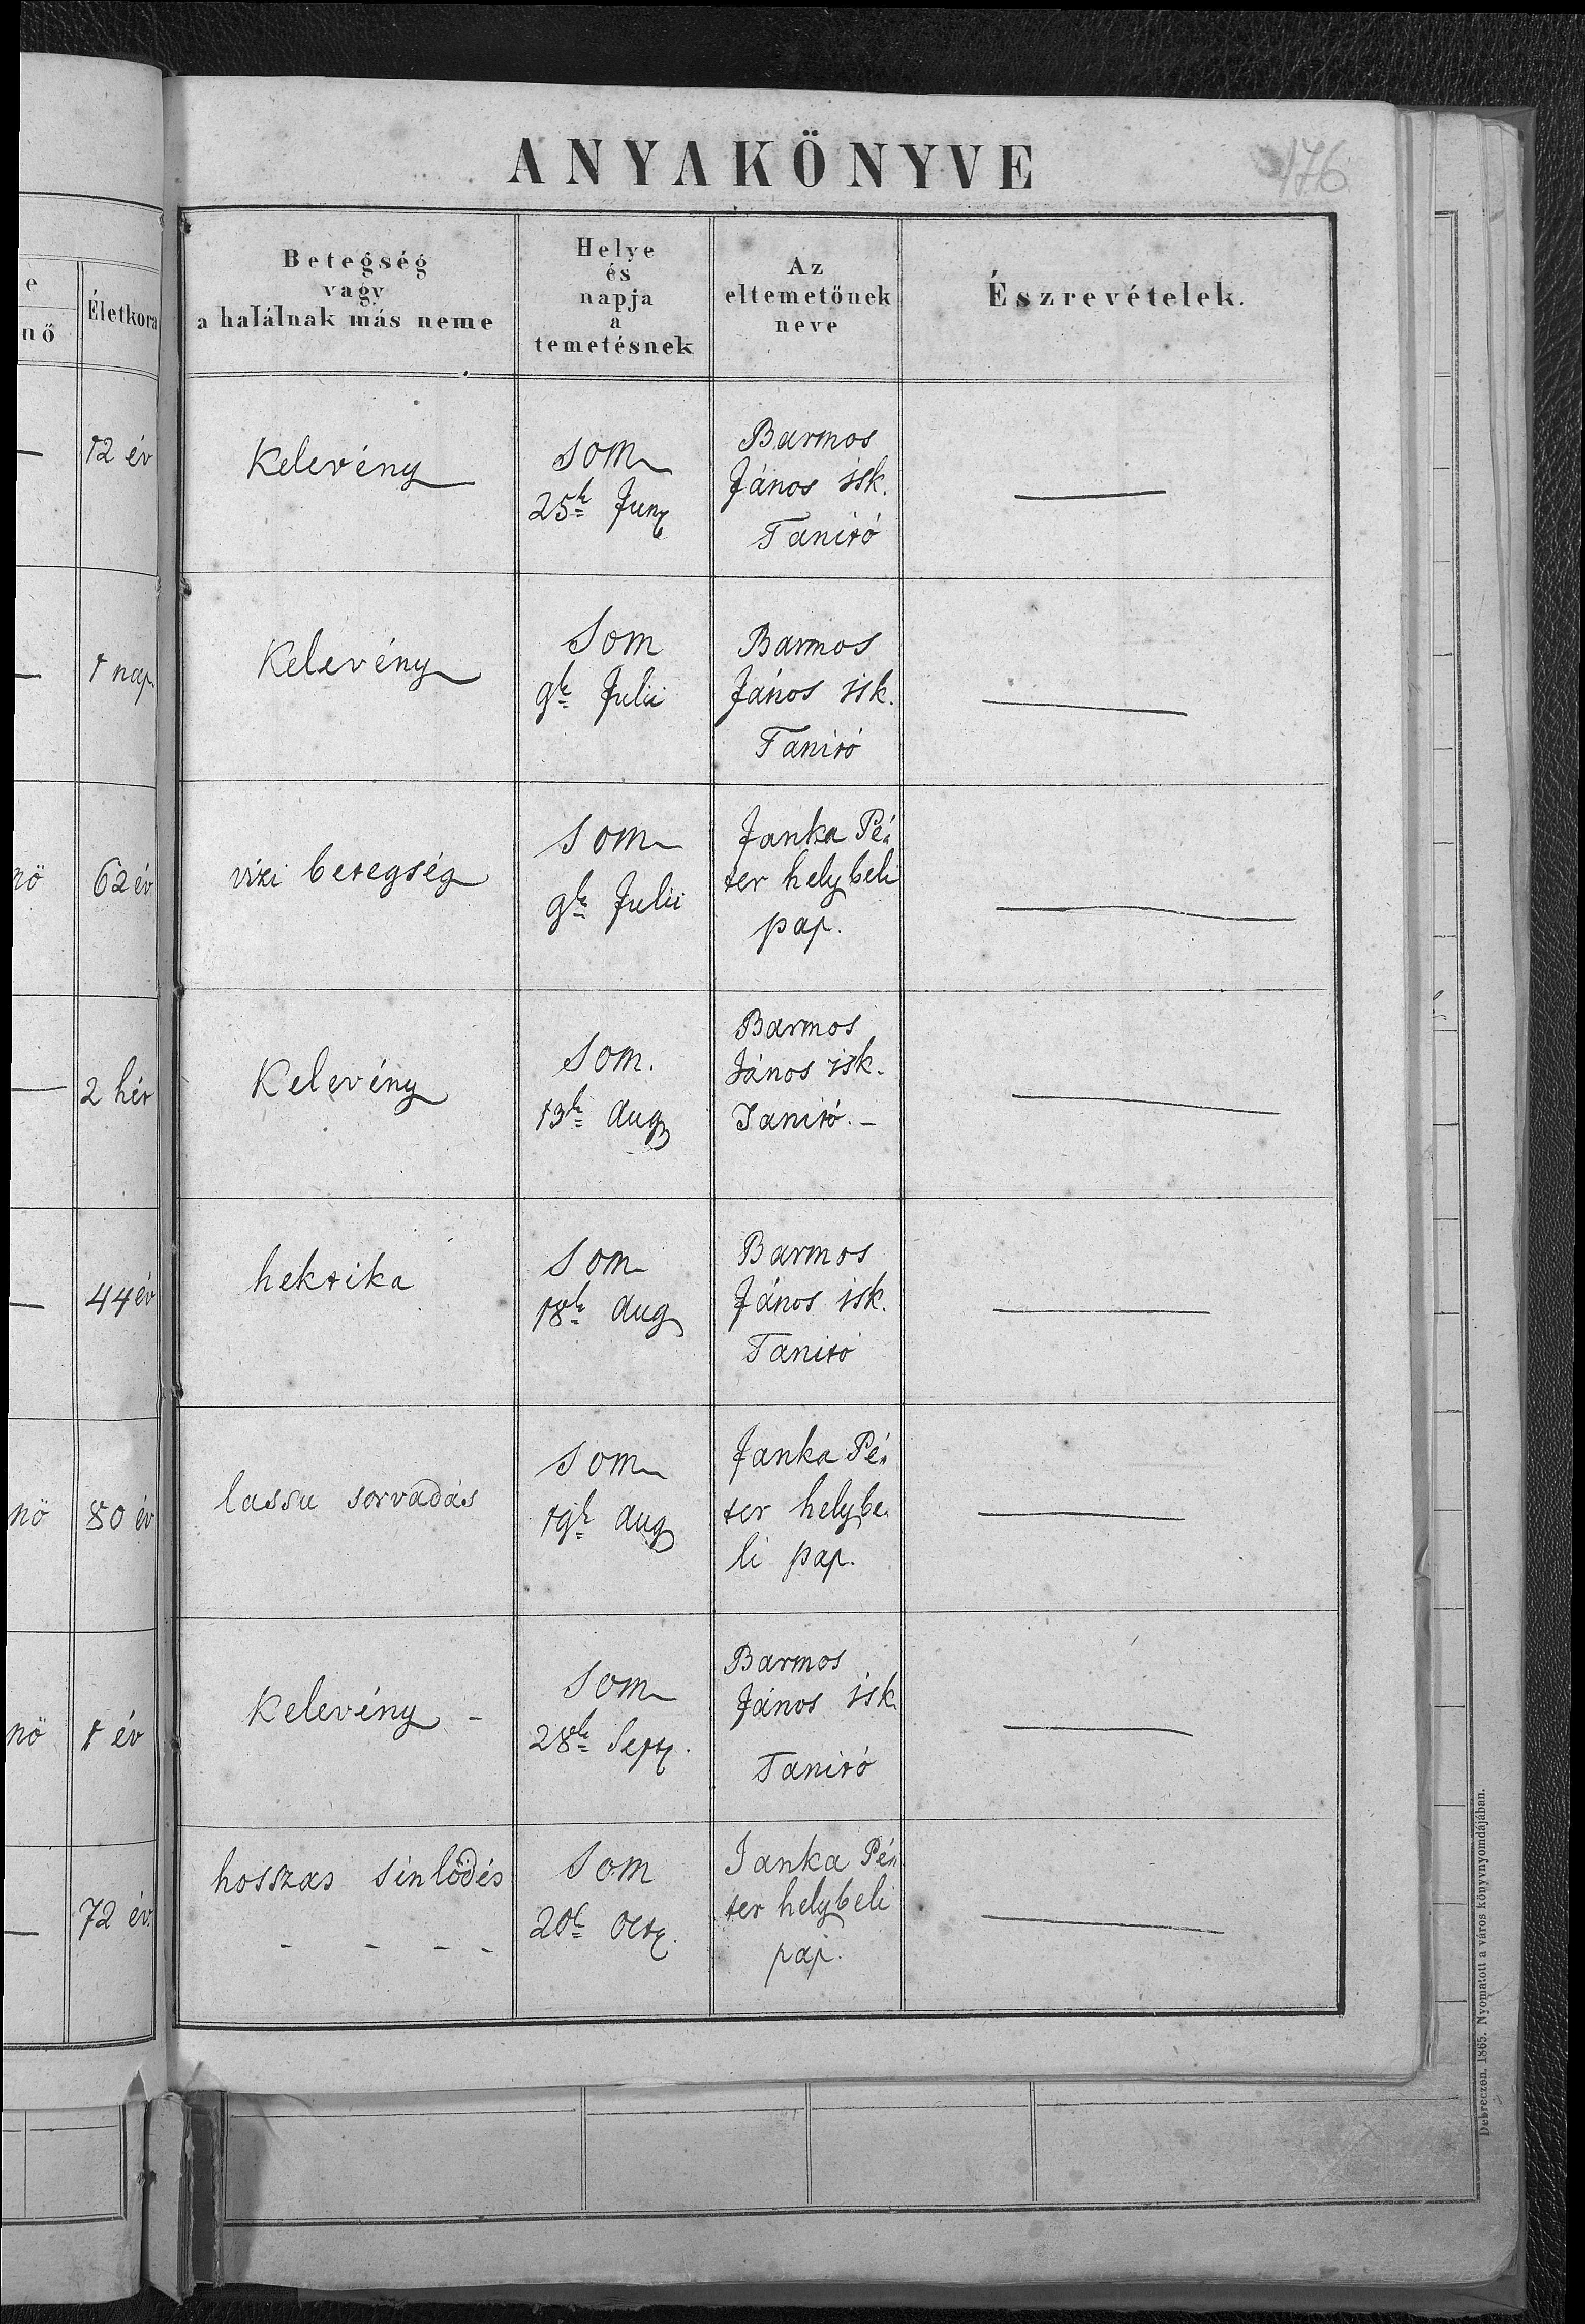 ANYAKÖNYVE
176
e
nő
Életkora
Betegség
vagy
a halálnak más neme
Helye
és
napja
a
temetésnek
Az
eltemetőnek
neve
Észrevételek.
— 12 év
Kelevény
Som
25k Juny
Barmos
János isk.
Tanitó
—
— 1 nap.
Kelevény
Som
9k Julii
Barmos
János isk.
Tanitó
—
nö 62 év
vizi betegség
Som
9k Julii
Janka Pé-
ter helybeli
pap.
—
— 2 hét
Kelevény
Som.
13k Aug
Barmos
János isk.
Tanitó. -
—
— 44 év
hektika
Som
18k Aug
Barmos
János isk.
Tanitó
—
nö 80 év
lassu sorvadás
Som
19k Aug
Janka Pé-
ter helybe-
li pap.
—
nö 1 év
Kelevény -
Som
28k Sept.
Barmos
János isk.
Tanitó
—
— 72 év.
hosszas sinlödés
- - - -
Som
20k Oct.
Janka Pé-
ter helybeli
pap.
—
Debreczen, 1865. Nyomatott a város könyvnyomdájában.